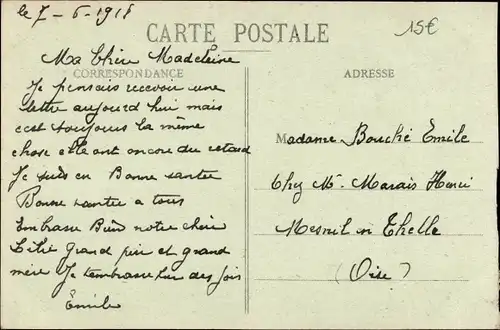 le 7-6-1918
15€
CARTE POSTALE
Ma Chère Madeleine
CORRESPONDANCE
Je pensais recevoir une
lettre aujourd hui mais
cest toujours la même
chose elle ont encore du retard
Je suis en Bonne santée
Bonne santée a tous
Embrasse Bien notre chère
grand père et grand
mère Je tembrasse des fois
Émile
ADRESSE
Madame Bouché Emile
Chez Mr Marais Henri
Mesnil en Thelle
(Oise)